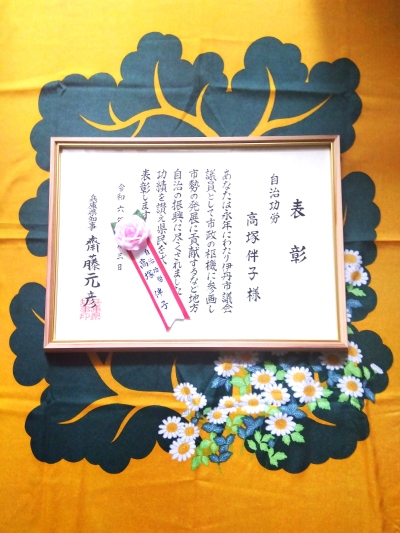 表彰
自治功労
高塚伴子様
あなたは永年にわたり伊丹市議会
議員として市政の枢機に参画し
市勢の発展に貢献するなど地方
自治の振興に尽くされました
功績を讃え県民を
表彰します
令和六
三日
兵庫県知事 齋藤元彦
自治功労
高塚 伴子